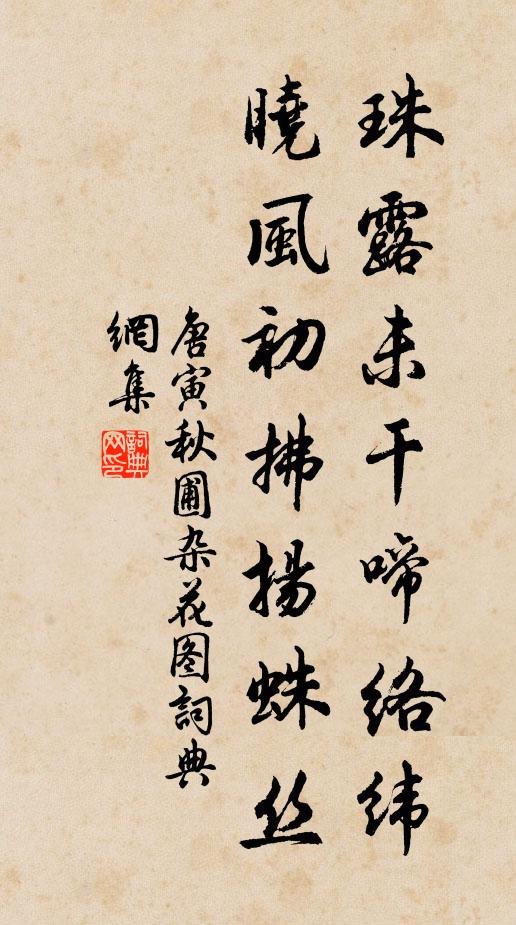 珠露未干啼络纬
曉風初拂揚蛛丝
唐寅秋圃杂花图詞典
網集
詞典网印